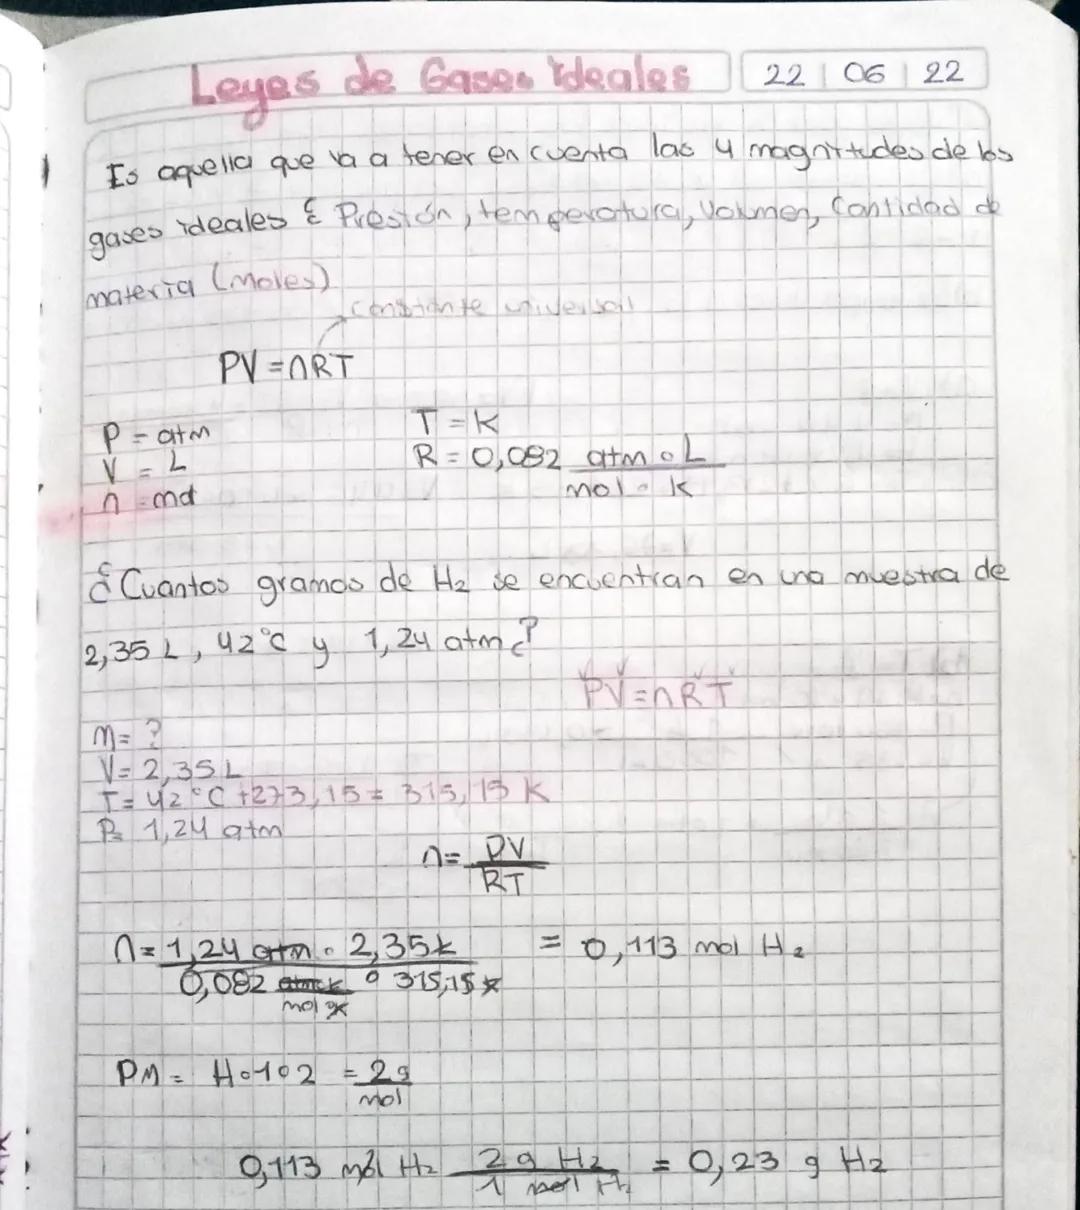 Leyes de Gases ideales 22 06 22
Es aquella que va a tener en cuenta las 4 magnitudes de los
gases ideales : Presión, temperatura, Volumen, Cantidad de
materia (Moles)
constante universal
PV = nRT
P = atm T = K
V = L R = 0,082 atm • L / mol • K
n = mol
¿Cuantos gramos de H2 se encuentran en una muestra de
2,35 L, 42°C y 1,24 atm?
PV = nRT
M = ?
V = 2,35 L
T = 42°C + 273,15 = 315,15 K
P = 1,24 atm
n = PV / RT
n = 1,24 atm • 2,35 L / 0,082 atm • L / mol • K • 315,15 K = 0,113 mol H2
PM = H • 1 • 2 = 2g / mol
0,113 mol H2 2 g H2 / 1 mol H2 = 0,23 g H2